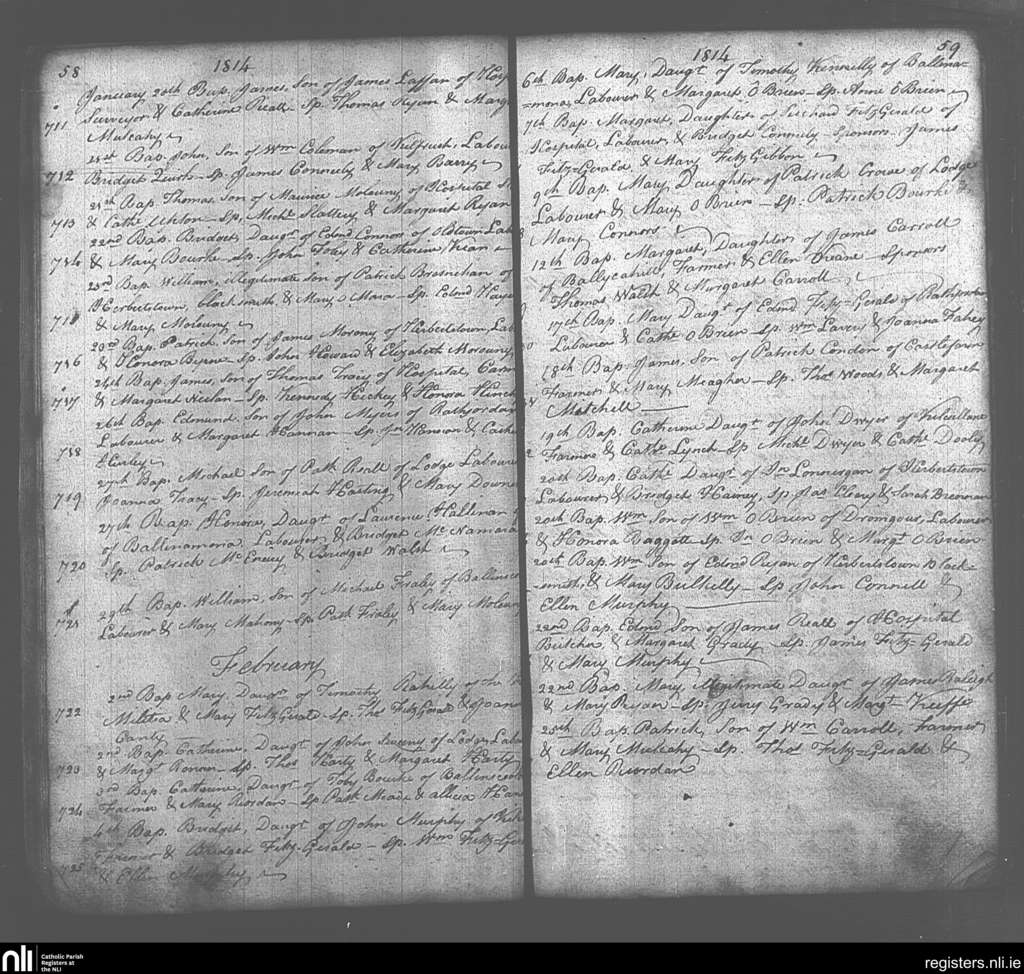 58
1814
January 20th Bap. James, Son of James Laffan of
711 Surveyor & Catherine Reall Sp. Thomas Ryan &
Mulcahy
21st Bap. John, Son of Wm Coleman of Kilfrush,
712 Bridget Quirke Sp. James Connelly & Mary Barry
21th Bap Thomas Son of Maurice Molouny of Hospital
713 & Cathe Upton Sp. Michl Slattery & Margaret Ryan
22nd Bap. Bridget, Daugt of Edmd Connors of Oldtown
714 & Mary Bourke Sp. John Foley & Catherine
23rd Bap. William, illegitimate Son of Patrick Brosnehan of
Herbertstown, & Mary O Mara Sp. Edmd
& Mary Molouny
23rd Bap. Patrick, Son of James Morony of Herbertstown,
716 & Honora Byrne Sp. John Howard & Elizabeth Morouny
24th Bap. James, Son of Thomas Tracy of Hospital,
717 & Margaret Sp. Kennedy Hickey & Honora
26th Bap. Edmund, Son of John Myers of Rathjordan
718 Labourer & Margaret Hannan Sp. Jn
27th Bap. Michael Son of Patk Reall of Lodge Laboure
719 Joanna Tracy Sp. Jeremiah & Mary
27th Bap. Honora, Daugt of Laurence Hallinan
of Ballinamona, Labourer & Bridget Mc Namara
720 Sp. Patrick Mc & Bridget Walsh
29th Bap. William, Son of Michael Fraley of
721 Labourer & Mary Mahony Sp. Patk Fraley & Mary
February
2nd Bap Mary, Daugt of Timothy Rahilly of the
722 Militia & Mary FitzGerald Sp. Thos FitzGerald &
2nd Bap. Catherine, Daugt of John Sweeny of Lodge,
723 & Margt Sp. Thos Harty & Margaret Harty
3rd Bap. Catherine, Daugt of Toby Bourke of
724 Farmer & Mary Riordan Sp. Patk Meade & Allicia
4th Bap. Bridget, Daugt of John Murphy of
725 Farmer & Bridget Fitz-Gerald Sp. Wm
& Ellen Murphy
1814
59
6th Bap. Mary, Daugt of Timothy Kennelly of Ballina=
=mona, Labourer & Margaret O Brien Sp. Anne O Brien
7th Bap. Margaret, Daughter of Richard FitzGerald of
Hospital, Labourer, & Bridget Connely Sponsors James
FitzGerald & Mary FitzGibbon
9th Bap. Mary, Daughter of Patrick Crowe of Lodge
Labourer & Mary O Brien Sp. Patrick Bourke &
Mary Connors
12th Bap. Margaret, Daughter of James Carroll
of Ballycahill, Farmer & Ellen Duane Sponsors
Thomas Walsh & Margaret Carroll
17th Bap. Mary Daugt of Edmd Fitz=Gerald of Rathjordan
Labourer & Cathe O Brien Sp. Wm Lavery & Joanna Fahey
18th Bap. James, Son of Patrick Condon of
Farmer & Mary Meagher Sp. Thos Woods & Margaret
Mitchell
19th Bap. Catherine Daugt of John Dwyer of
Farmer & Cathe Lynch Sp Michl Dwyer & Cathe Dooley
20th Bap. Cathe Daugt of Jn Lonourgan of Herbertstown
Labourer, & Bridget Sp. Jas Cleary & Sarah Brennan
20th Bap. Wm Son of Wm O Brien of Labourer
& Honora Baggott Sp. Jn O Brien & Margt O Brien
20th Bap. Wm Son of Edmd Ryan of Herbertstown Black-
smith, & Mary Sp John Connell &
Ellen Murphy
22nd Bap. Edmd, Son of James Reall of Hospital
Butcher, & Margaret Grady Sp. James Fitz=Gerald
& Mary Murphy
22nd Bap. Mary, illegitimate Daugt of James Raleigh
& Mary Ryan Sp. Jerry Grady & Margt Keeffe
25th Bap. Patrick, Son of Wm Carroll, Farmer
& Mary Mulcahy Sp. Thos Fitz=Gerald &
Ellen Riordan
nli Catholic Parish Registers at the NLI
registers.nli.ie